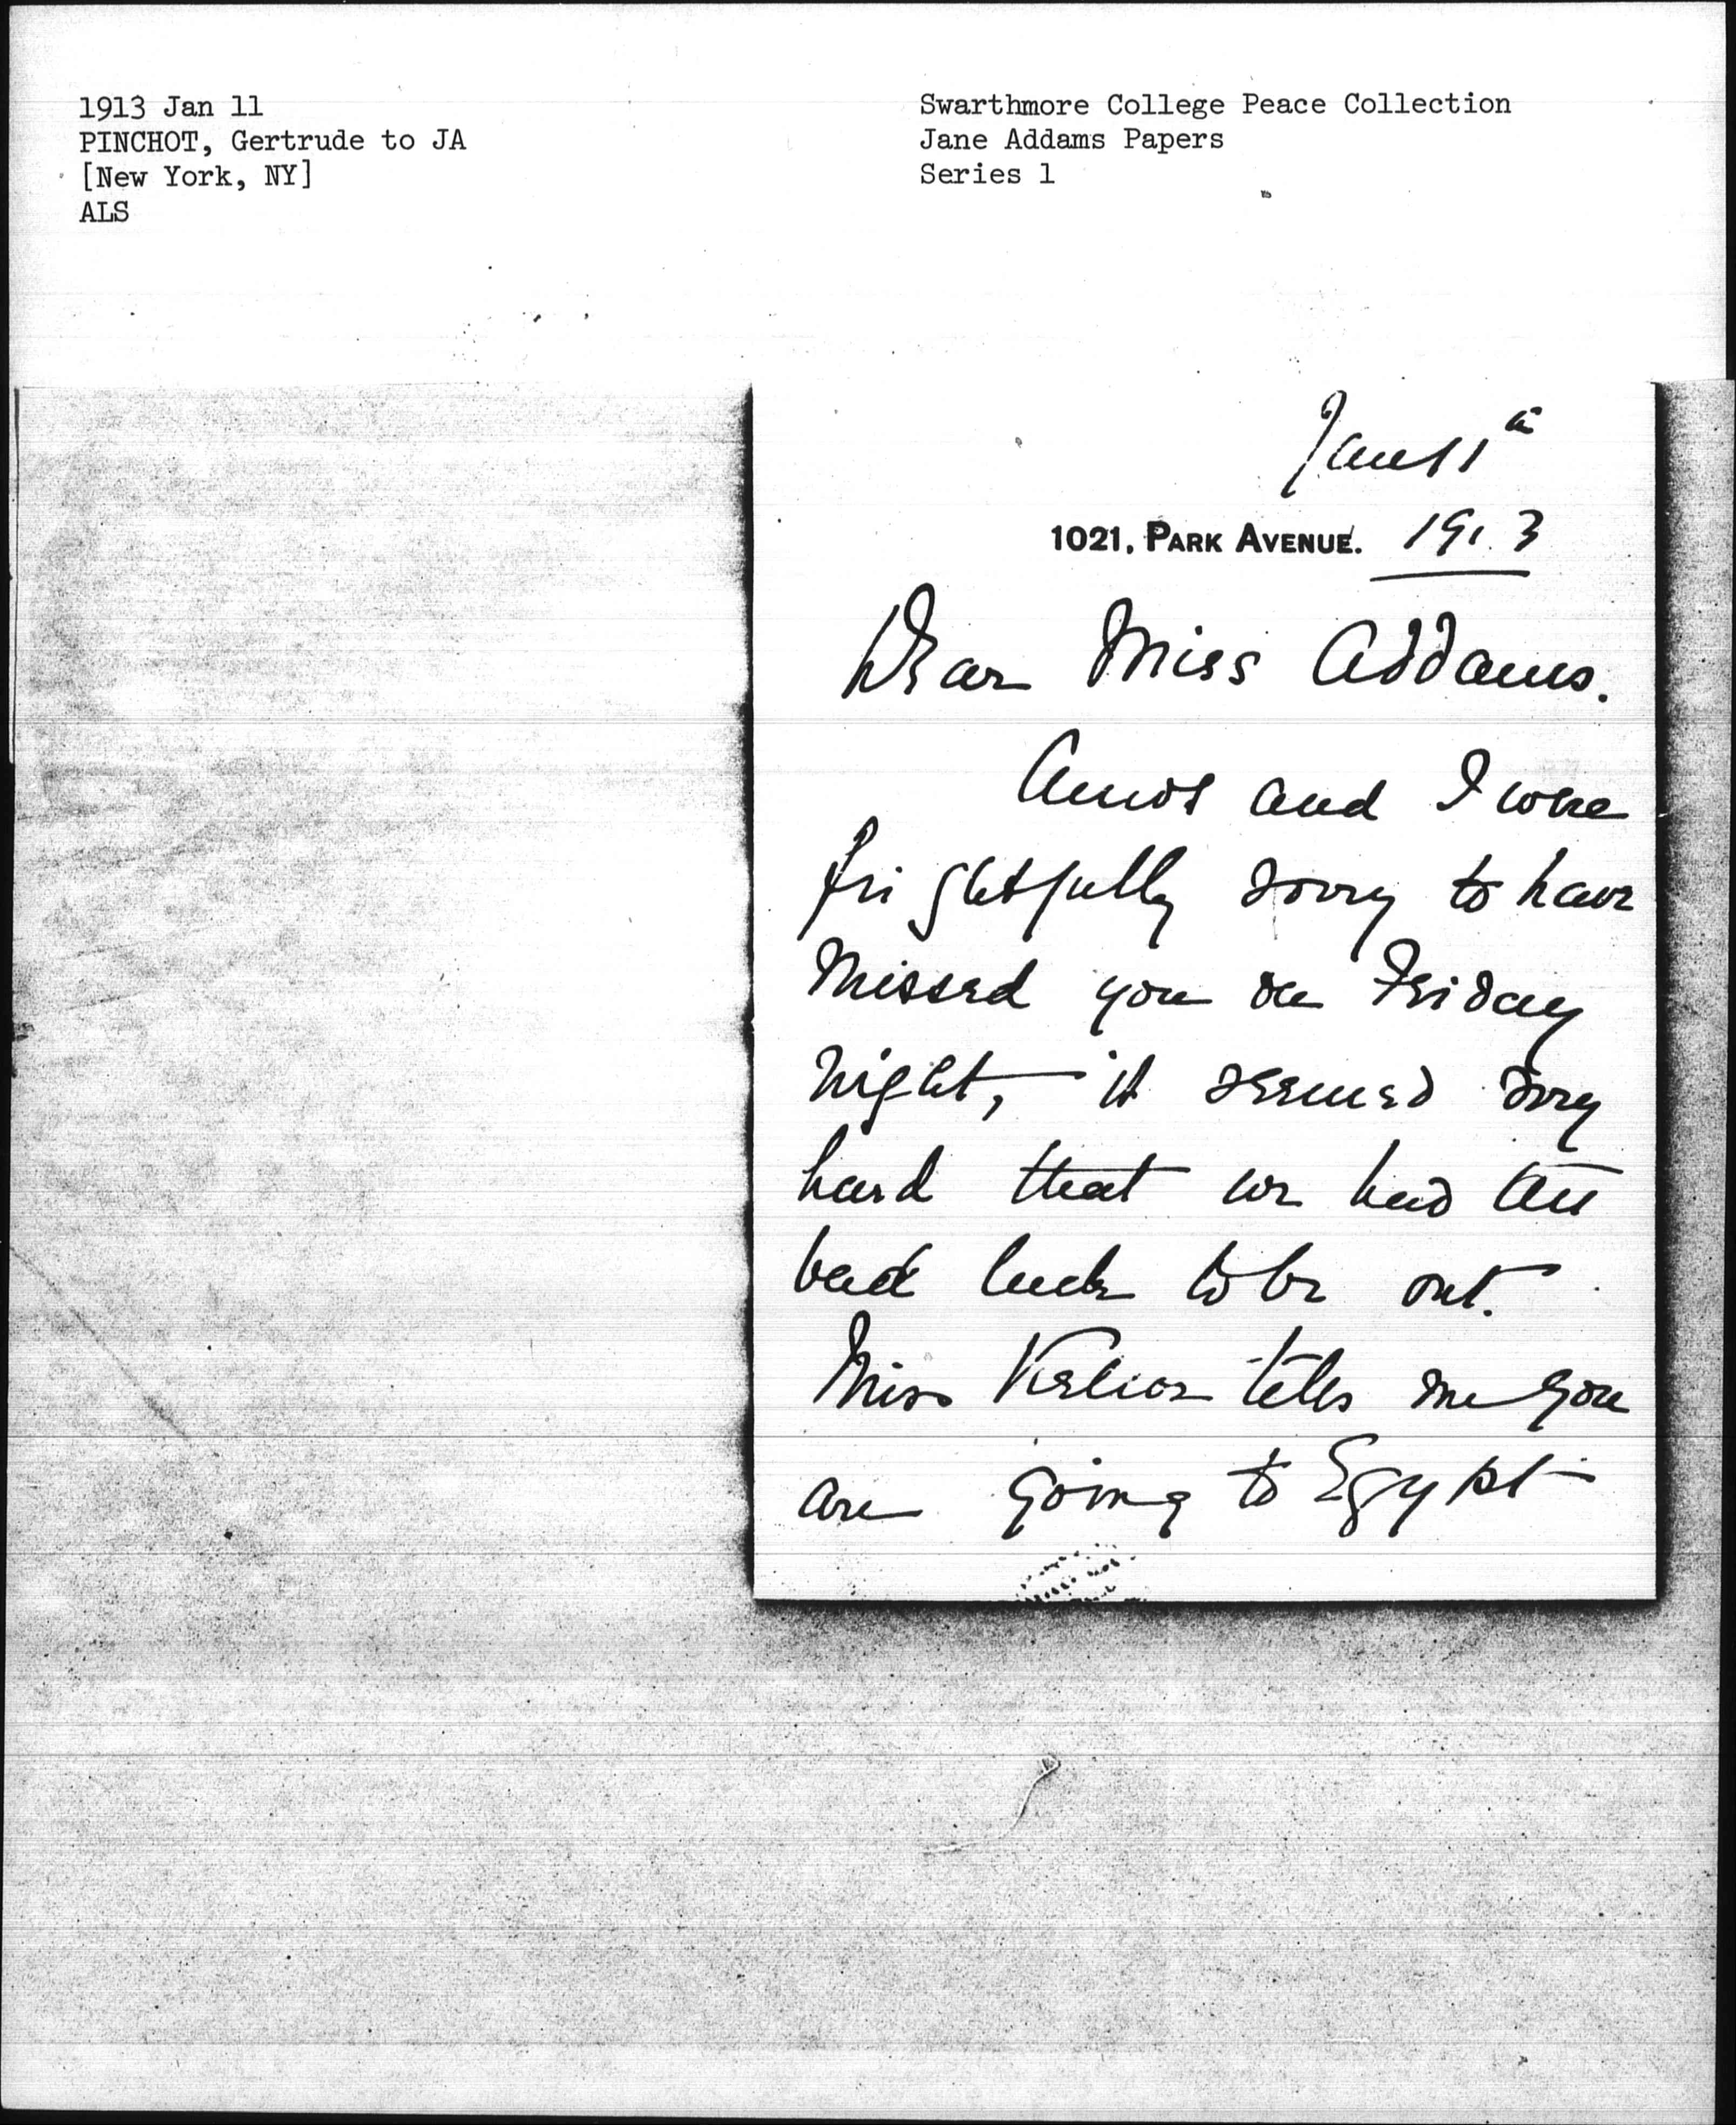 1913 Jan 11
PINCHOT, Gertrude to JA
[New York, NY]
ALS
Swarthmore College Peace Collection
Jane Addams Papers
Series 1
Jan 11th
1021, PARK AVENUE. 1913
Dear Miss Addams.
Amos and I were
frightfully sorry to have
missed you on Friday
night, it seemed very
hard that we had the
bad luck to be out.
Miss Kellor tells me you
are going to Egypt